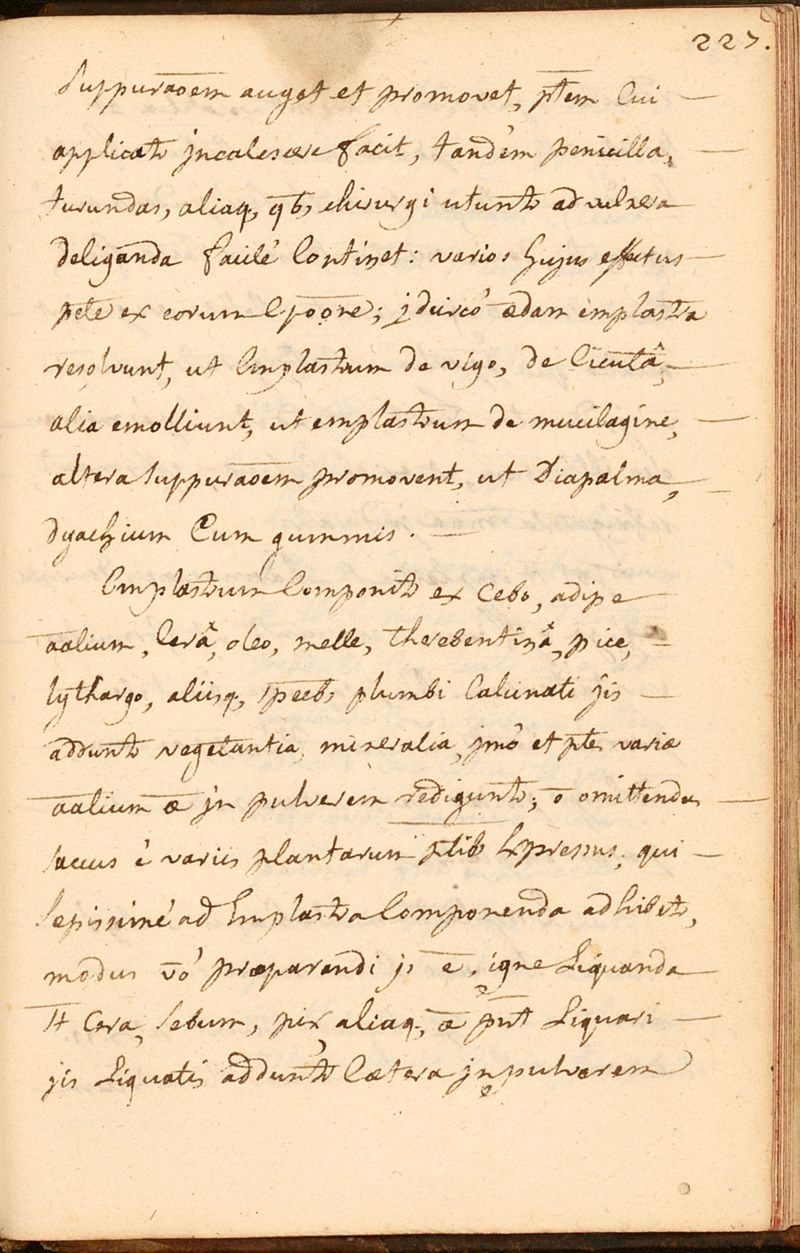 227.
suppuraoem auget et promovet, ptem cui —
applicatr jncalescere facit, tandem penicilla,
turundas, aliaq, qb, chirurgi utuntr ad vulnera
deliganda facilé continet: varios hujus effectus
pete ex eorum cpoone; jdcircó ædam emplastra
resolvunt, ut emplastrum de vigo, de cicutâ, —
alia emolliunt, ut emplastrum de mucilagine, —
altera suppuraoem promovent, ut Diapalma,
dyachium cum gummis. —
Emplastrum componitr ex cebo, adipe
aalium, cerâ, oleo, melle, therebentinâ, pice, —
lythargo, aliisq, speeb, plumbi calcinati jis —
adduntr vegetantia, mineralia, jmó et ptes variæ
aalium æ jn pulverem rediguntr; o omittendus —
succus é variis plantarum ptib expressus, qui —
sepissimé ad emplastra componenda adhibetr,
modus vó præparandi js e, igne Liquanda
st cera, sebum, pix, aliaq, æ put Liquari —
jis Liquatis adduntr cætera jn pulverem